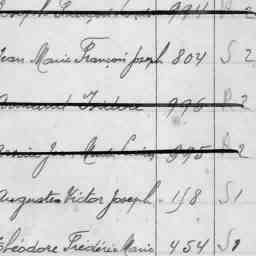 Joseph François Louis 994 R 2
Jean Marie François Joseph 804 S 2
Armand Isidore 996 R 2
Marie Jean Marie Louis 995 R 2
Auguste Victor Joseph 158 S 1
Théodore Frédéric Marie 454 S 1